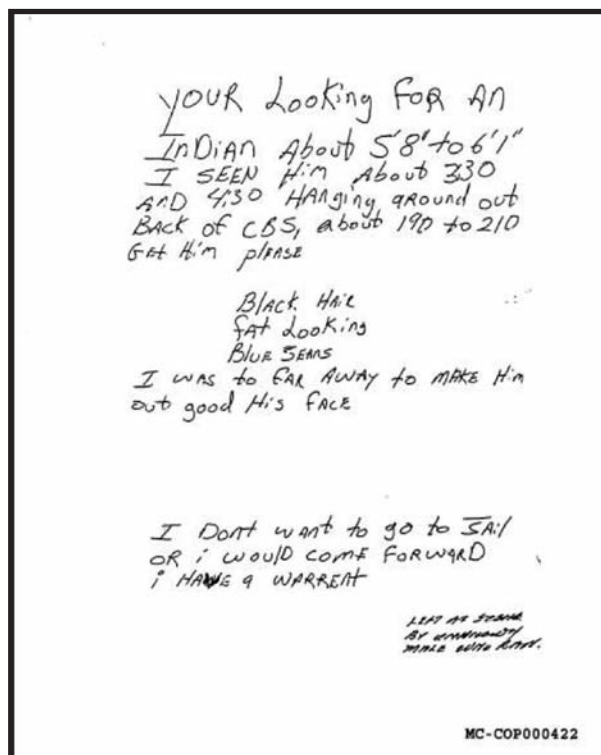 YOUR Looking FOR AN
INDIAN About 5'8" to 6'1"
I SEEN Him About 330
AND 4:30 HANGING AROUND out
BACK of CBS, about 190 to 210
Get Him please
BLACK HAIR
FAT Looking
BLUE JEANS
I WAS to FAR AWAY to MAKE Him
out good His FACE
I DONT want to go to JAil
OR i WOULD COME FORWARD
i HAVE a WARRENT
LEFT AT SCENE
BY UNKNOWN
MALE WHO RAN.
MC-COP000422